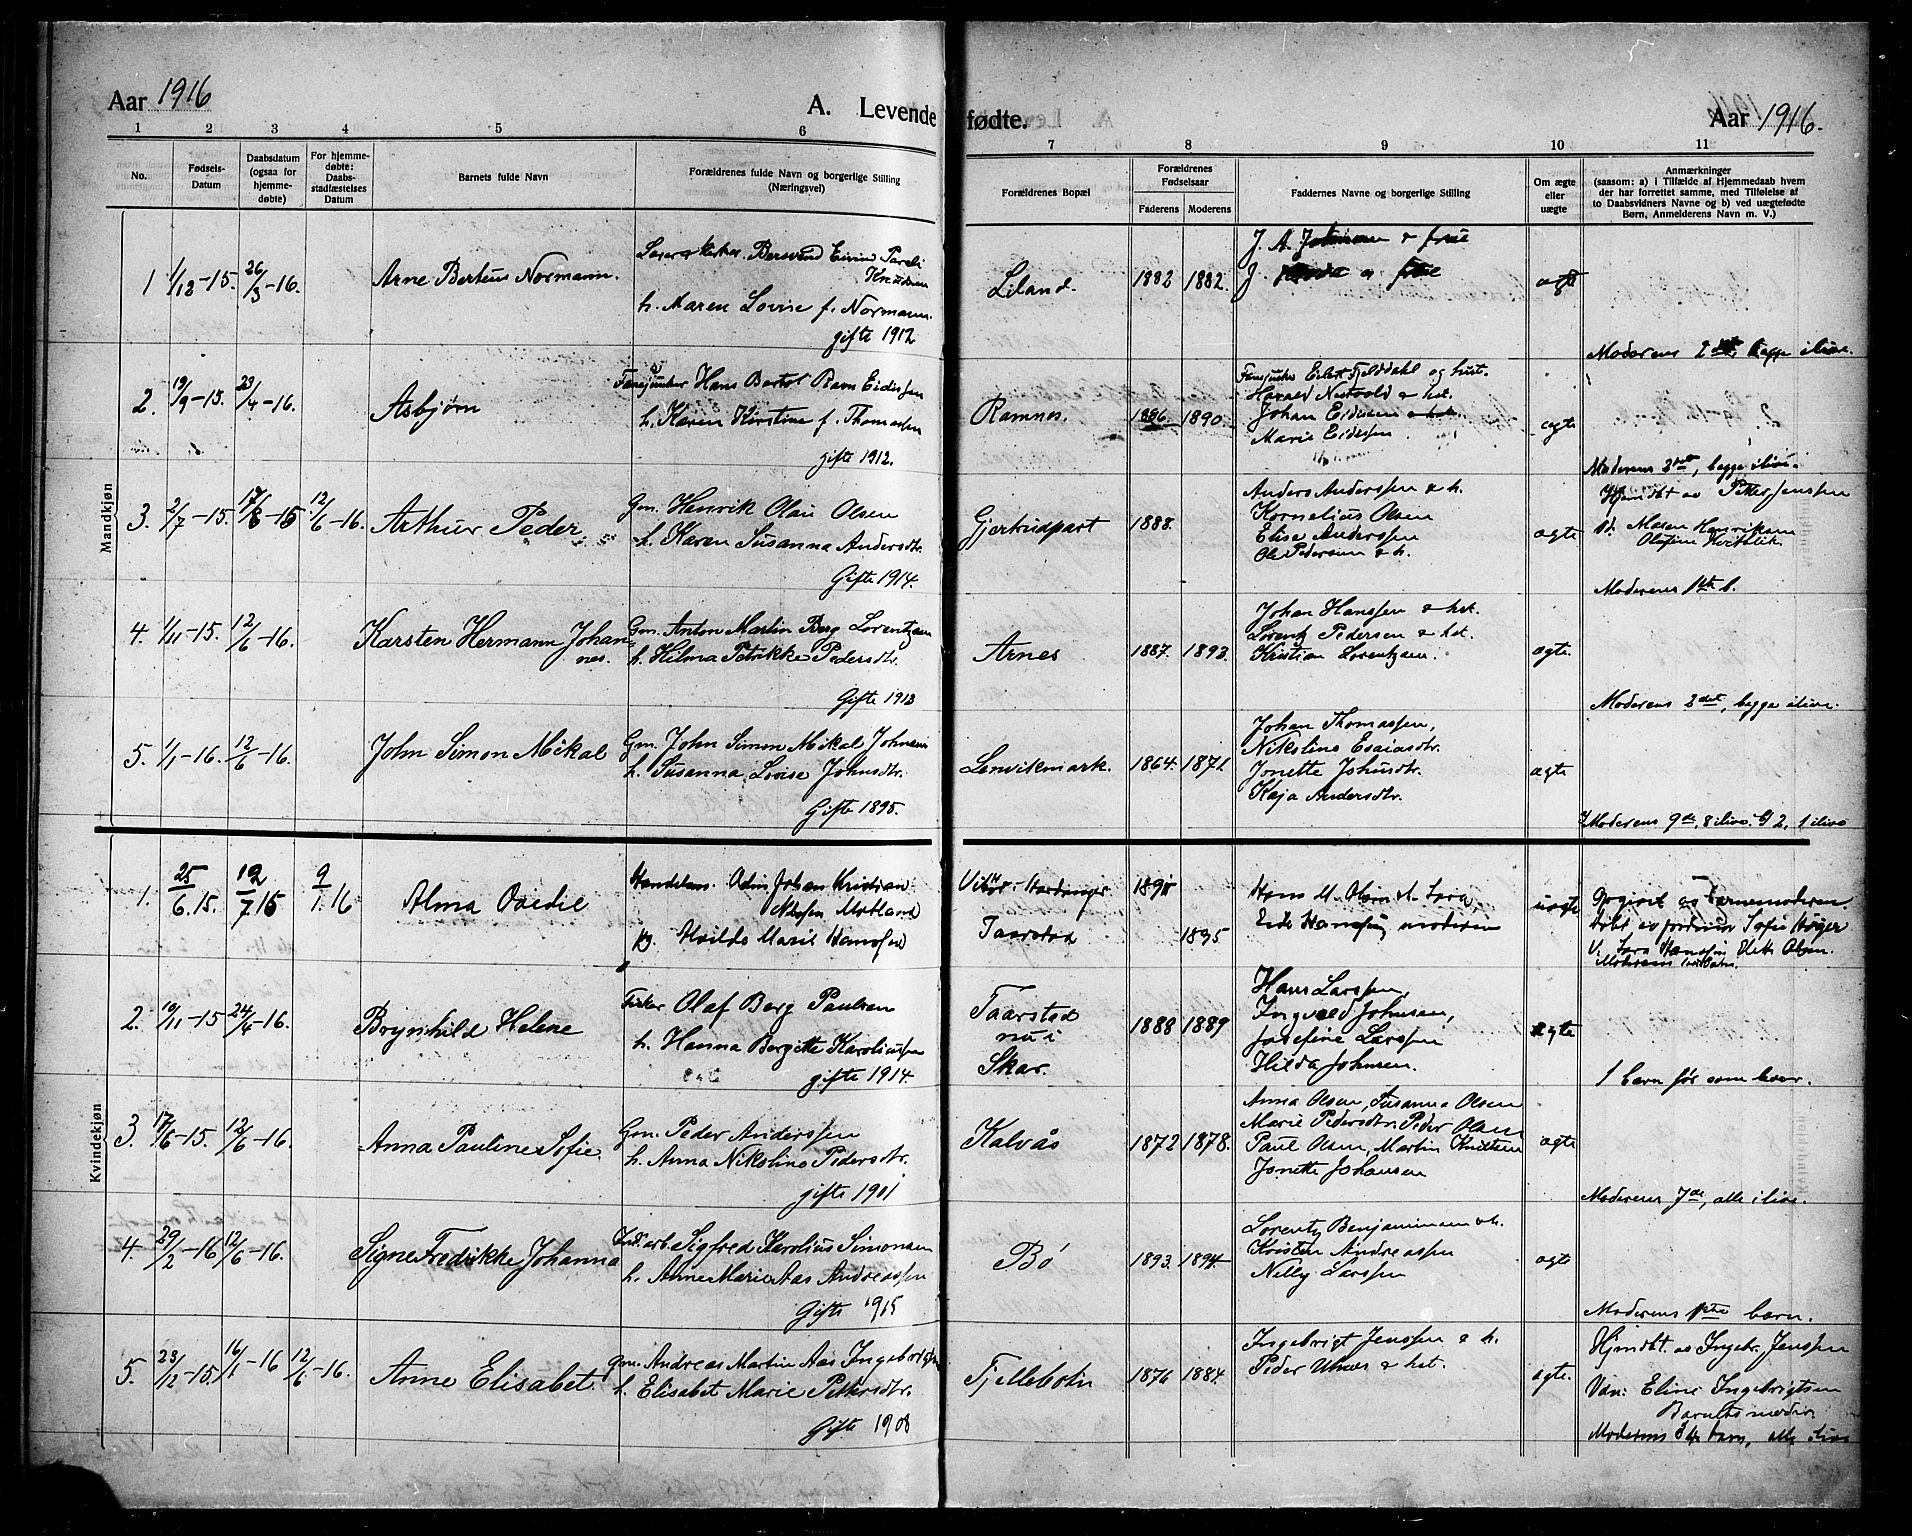 Aar 1916
A. Levende
1 2 3 4 5 6
No.
Fødsels-
Datum
Daabsdatum
(ogsaa for
hjemme-
døbte)
For hjemme-
døbte:
Daabs-
stadfæstelses
Datum
Barnets fulde Navn
Forældrenes fulde Navn og borgerlige Stilling
(Næringsvei)
Mandkjøn
1 1/12-15. 26/3-16. Arne Berteus Normann.
Knudsen
h. Maren Lovise f. Normann.
gifte 1912
2. 19/9-15. 23/4-16. Asbjørn
Fanejunker Hans Bertol Ravn Eidissen
h. Karen Kirstine f. Thomassen
gifte 1912.
3. 2/7-15. 17/8-15 12/6-16. Arthur Peder
Gm. Henrik Olai Olsen
h. Karen Susanna Andersdtr.
Gifte 1914.
4. 1/11-15. 12/6-16. Karsten Hermann Johan
nes.
Gm. Anton Martin Berg Lorentzen
h. Hilma Petrikke Pedersdtr.
Gifte 1913
5. 1/1-16. 12/6-16. John Simon Mikal
Gm. John Simon Mikal Johnsen
h. Susanna Lovise Johnsdtr.
Gifte 1895.
Kvindekjøn
1. 25/6.15. 12/7 15 9/1.16 Alma Ovedie
Handelsm. Odin Johan Kristian
pg. Hvilda Marie Hansen
2. 19/11-15 24/4-16. Brynhild Helene
Fisker Olaf Berg Paulsen
h. Hanna Bergitte Karoliussen
gifte 1914.
3. 17/6-15. 12/6-16. Anna Pauline Sofie.
Gm. Peder Anderssen
h. Anna Nikoline Pedersdtr.
gifte 1901
4. 29/2-16 12/6-16. Signe Fredrikke Johanna
Sigfred Karolius Simonsen
h. Anne Marie Aas Andreassen
Gifte 1915
5. 23/12-15. 16/1-16 12/6-16. Anne Elisabet.
Gm. Andreas Martin Aas Ingebrigtsen
h. Elisabet Marie Pettersdtr.
Gifte 1908
fødte.
Aar 1916.
7 8 9 10 11
Forældrenes Bopæl
Forældrenes
Fødselsaar
Faderens Moderens
Faddernes Navne og borgerlige Stilling
Om ægte
eller
uægte
Anmærkninger
(saasom: a) i Tilfælde af Hjemmedaab hvem
der har forrettet samme, med Tilføielse af
to Daabsvidners Navne og b) ved uægtefødte
Børn, Anmelderens Navn m. V.)
J. A. Johnsen & frue
J. & frue
Liland. 1882 1882. ægte
Moderens 2det, begge ilive.
Fanejunker Eilert Fjelddahl og hust.
Harald Nestvold & hst.
Ramnes. 1886. 1890. Johan Eidissen & hst. ægte
Marie Eidissen
Moderens 2det, begge ilive.
Anders Anderssen & h.
Hjemdbt av Petter Jenssen
Kornelius Olsen
Gjertrudpart 1888. Elise Anderssen ægte
Vd. Maren Henriksen
Ole Pedersen & h.
Olufine Kvitblik.
Moderens 1ste b.
Johan Hanssen & hst.
Lorentz Pedersen & hst.
Arnes 1887. 1893. Kristian Lorentzen. ægte.
Moderens 2det, begge ilive.
Johan Thomassen,
Nikoline Esaiasdtr.
Lenvikmark. 1864. 1871. Jonette Johnsdtr. ægte
Kaja Andersdtr.
Moderens 9de, 8 ilive. G 2, 1 ilive
Hardanger Hans M. Olsen
Taarstad 1895 moderen uægte
Opgivet av Barnemoderen.
Moderens 1ste Barn.
Hans Larssen,
Taarstad
nu i
Skar. 1888 1889 Ingvald Johnsen, ægte
Josefine Larssen
Hilda Johnsen.
1 barn før som lever.
Anna Olsen, Susanna Olsen
Marie Pedersdtr. Peder Olsen
Kalvås 1872 1878. Paul Olsen, Martin Knutsen ægte
Jonette Johansen
Moderens 7de, alle ilive.
Lorentz Benjaminsen & h.
Bø 1893. 1894. Kristen Andreassen ægte
Nelly Larssen
Moderens 1ste barn.
Ingebrigt Jenssen & h.
Fjellebotn 1876 1884. Peder Unaas & hst. ægte.
Hjmdbt. av Ingebr. Jenssen
Vdn: Eline Ingebrigtsen
Barnets moder
Moderens 4de barn, alle ilive